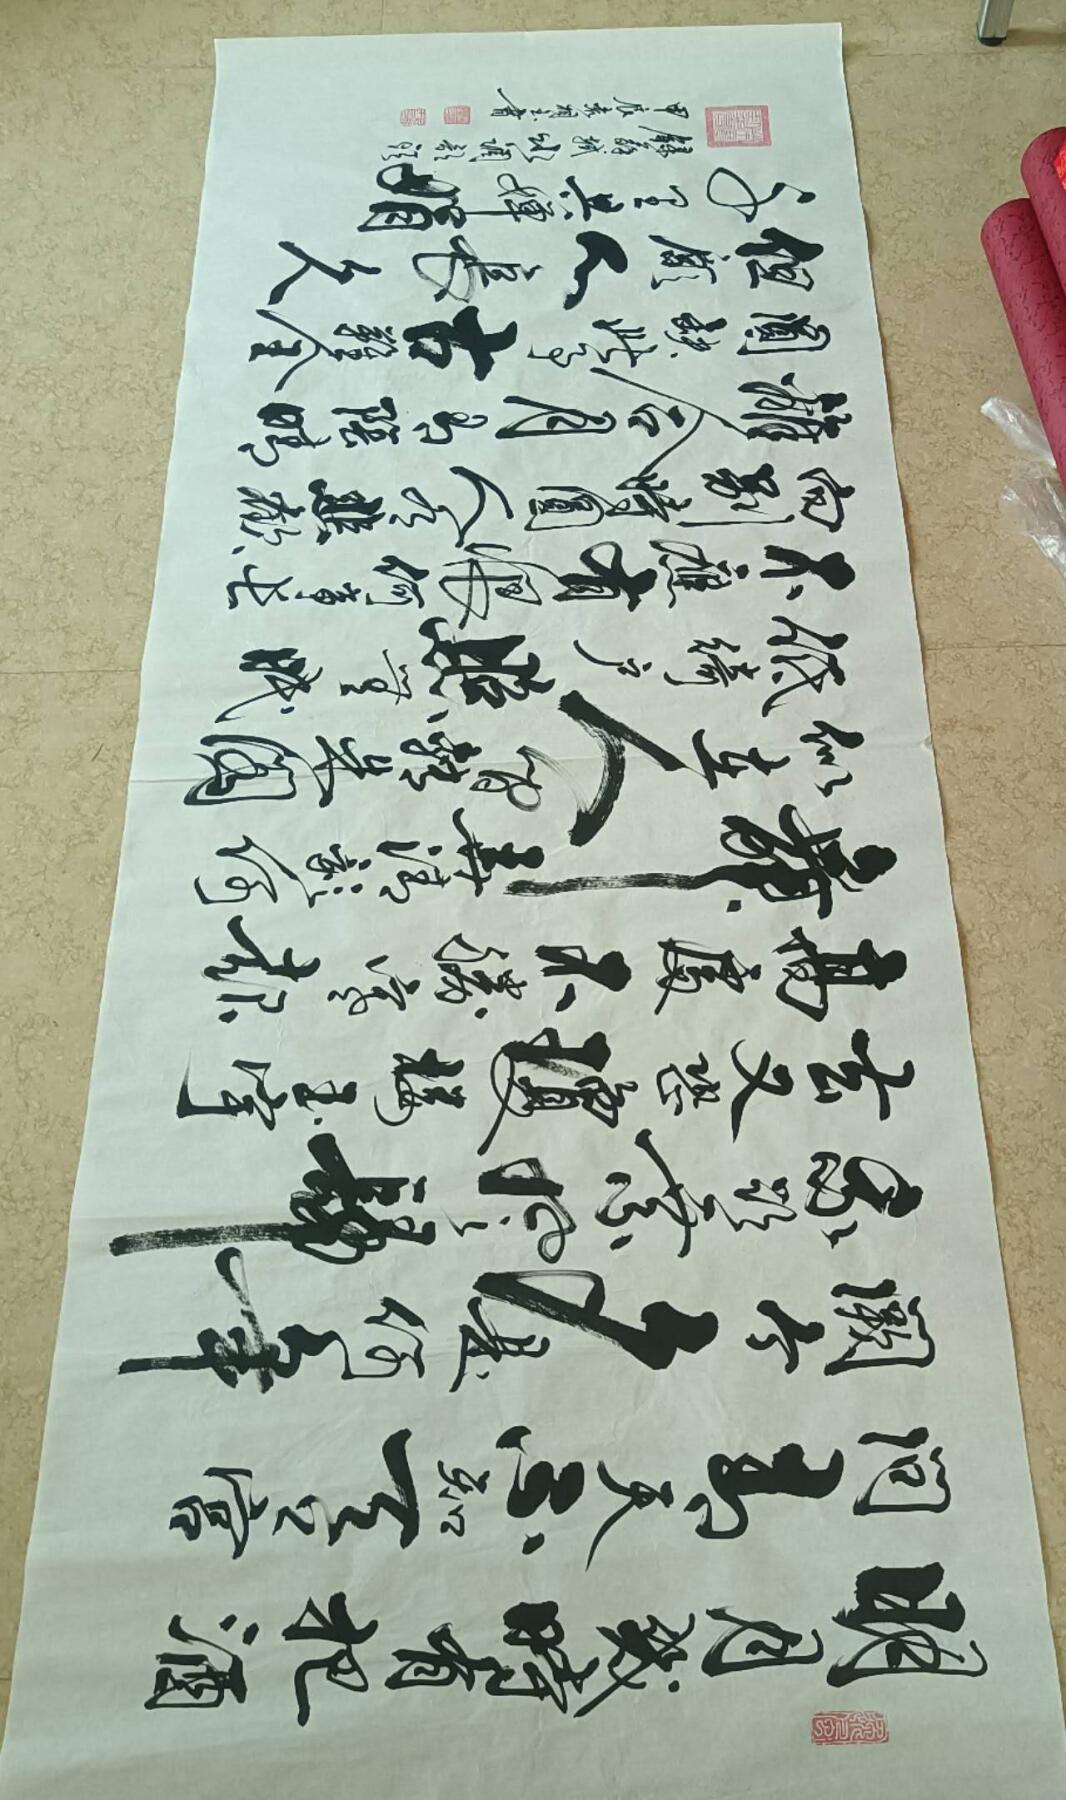 明月幾時有把酒
问青天不知天上宫
闕今夕是何年
我欲乘風歸
去又恐瓊樓玉宇
高處不勝寒起
舞弄清影何
似在人間轉朱閣
低綺户照無眠
不應有恨何事長
向別時圓人有悲歡
離合月有陰晴
圓缺此事古難全
但願人長久
千里共嬋娟
錄蘇軾水調歌頭
甲辰春書